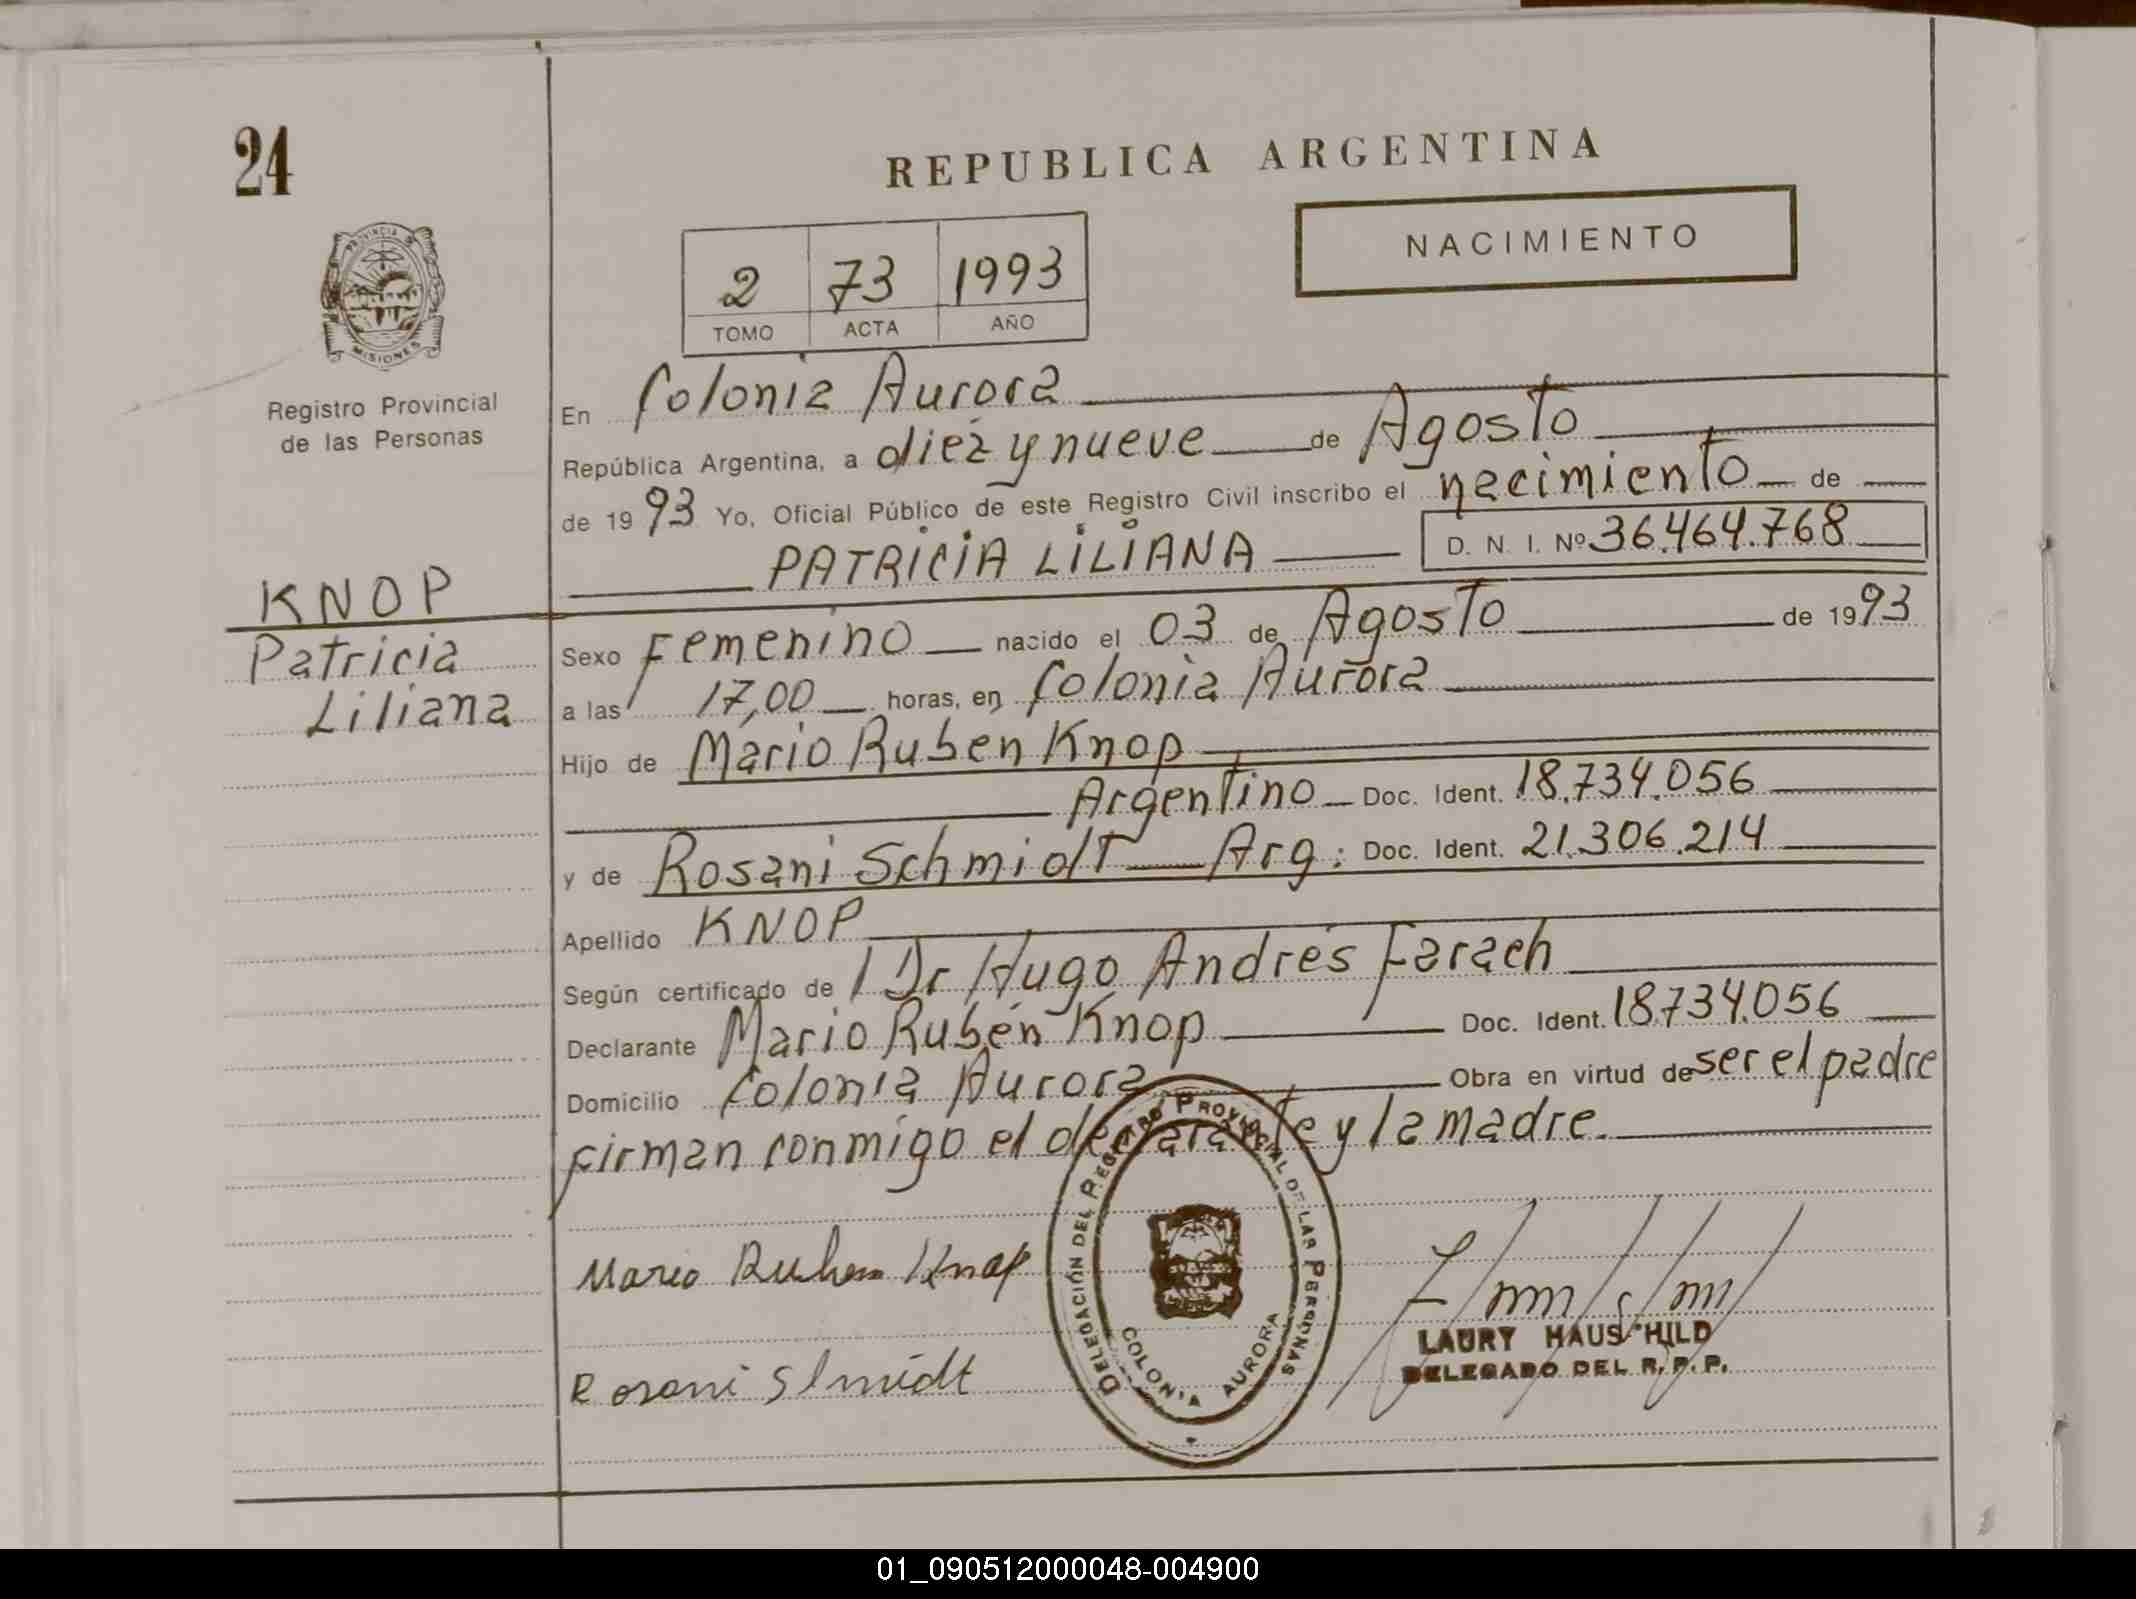 24
REPUBLICA ARGENTINA
NACIMIENTO
2 73 1993
TOMO ACTA AÑO
PROVINCIA DE
MISIONES
Registro Provincial
de las Personas
KNOP
Patricia
Liliana
En Colonia Aurora
República Argentina, a diez y nueve de Agosto
de 1993 Yo, Oficial Público de este Registro Civil inscribo el nacimiento de
PATRICIA LILIANA D. N. I. Nº 36.464.768
Sexo Femenino nacido el 03 de Agosto de 1993
a las 17,00 horas, en Colonia Aurora
Hijo de Mario Ruben Knop
Argentino Doc. Ident. 18.734.056
y de Rosani Schmidt Arg: Doc. Ident. 21.306.214
Apellido KNOP
Según certificado de Dr Hugo Andrés Farach
Declarante Mario Rubén Knop Doc. Ident. 18.734.056
Domicilio Colonia Aurora Obra en virtud de ser el padre
firman conmigo el declarante y la madre.
Mario Ruben Knop
Rosani Slmidt
DELEGACIÓN DEL REGISTRO PROVINCIAL DE LAS PERSONAS
COLONIA AURORA
LAURY HAUSCHILD
DELEGADO DEL R.P.P.
01_090512000048-004900